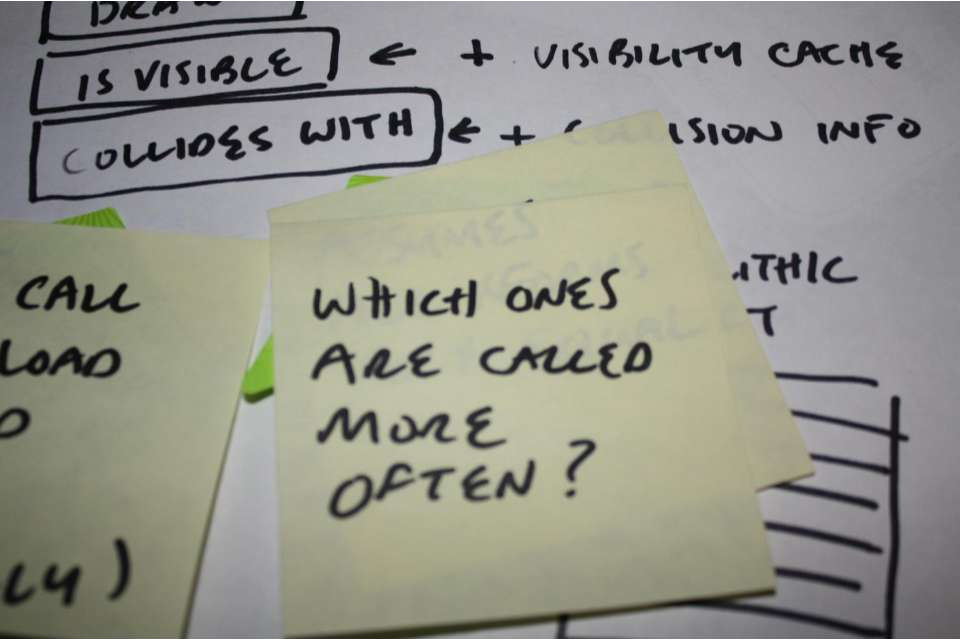 DRAW
IS VISIBLE ← + VISIBILITY CACHE
COLLIDES WITH ← + INFO
CALL
LOAD
WHICH ONES
ARE CALLED
MORE
OFTEN?